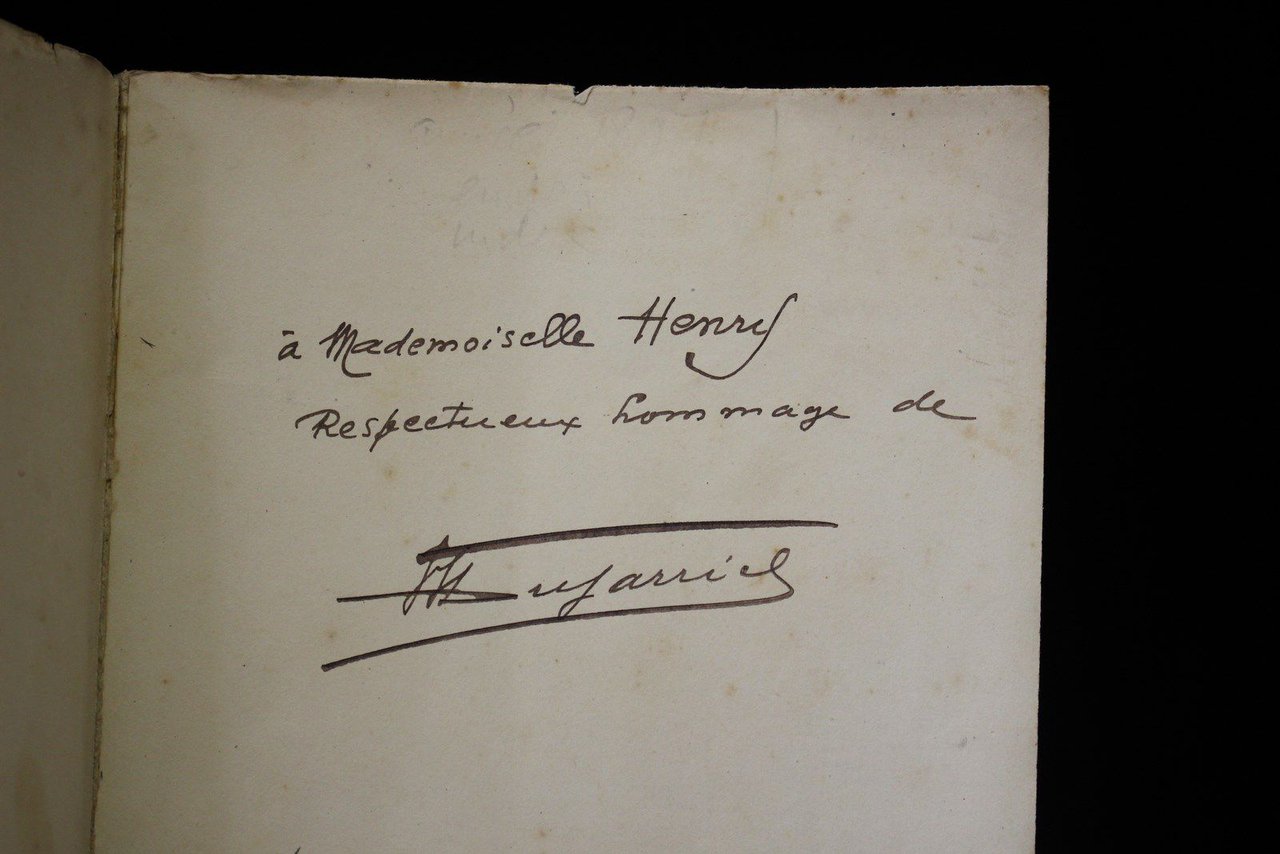 à Mademoiselle Henry
Respectueux hommage de